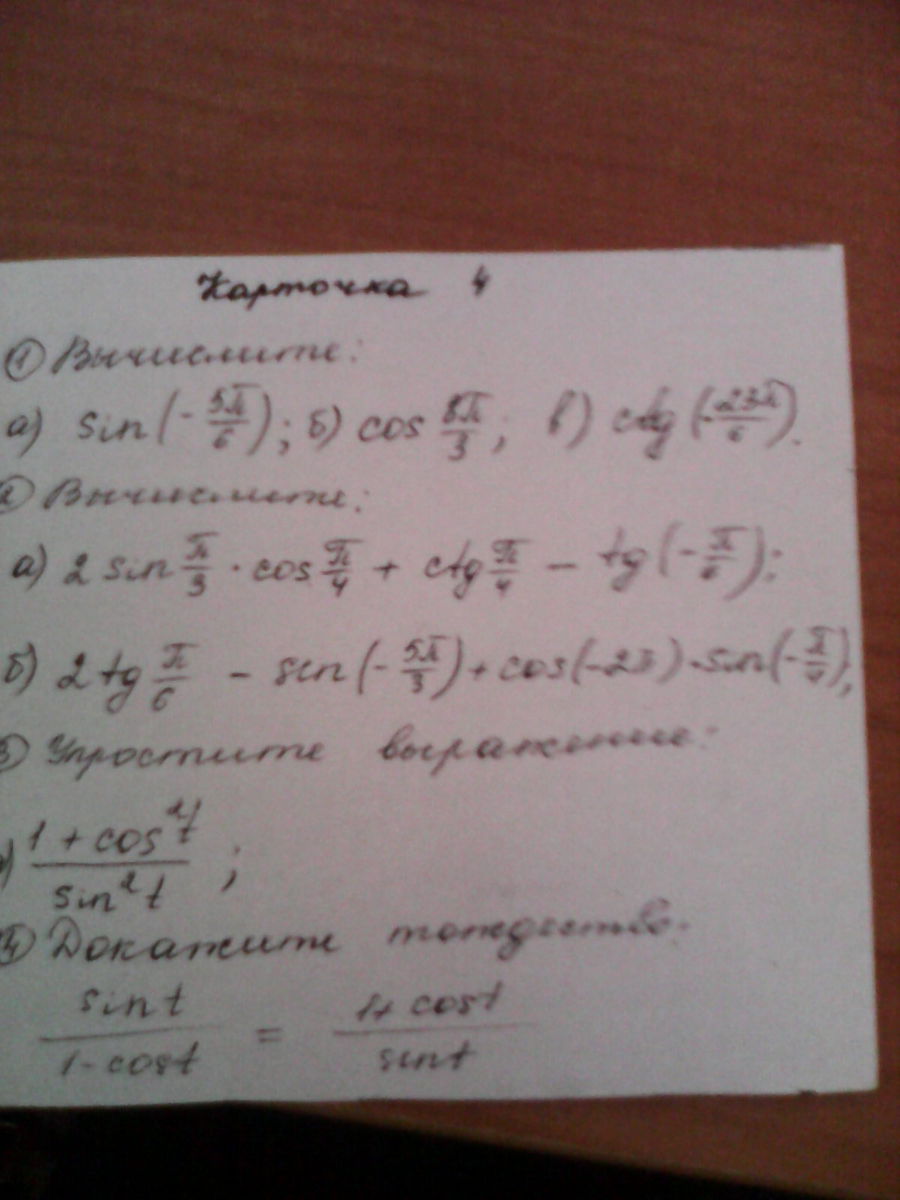 Карточка 4
① Вычислите:
а) sin(-5π/6); б) cos 8π/3; в) ctg(-23π/6).
② Вычислите:
а) 2 sin π/3 · cos π/4 + ctg π/4 - tg(-π/6);
б) 2 tg π/6 - sin(-5π/3) + cos(-2π) · sin(-π/4);
③ Упростите выражение:
(1 + cos²t)/(sin²t);
④ Докажите тождество:
sint/(1-cost) = (1+cost)/sint